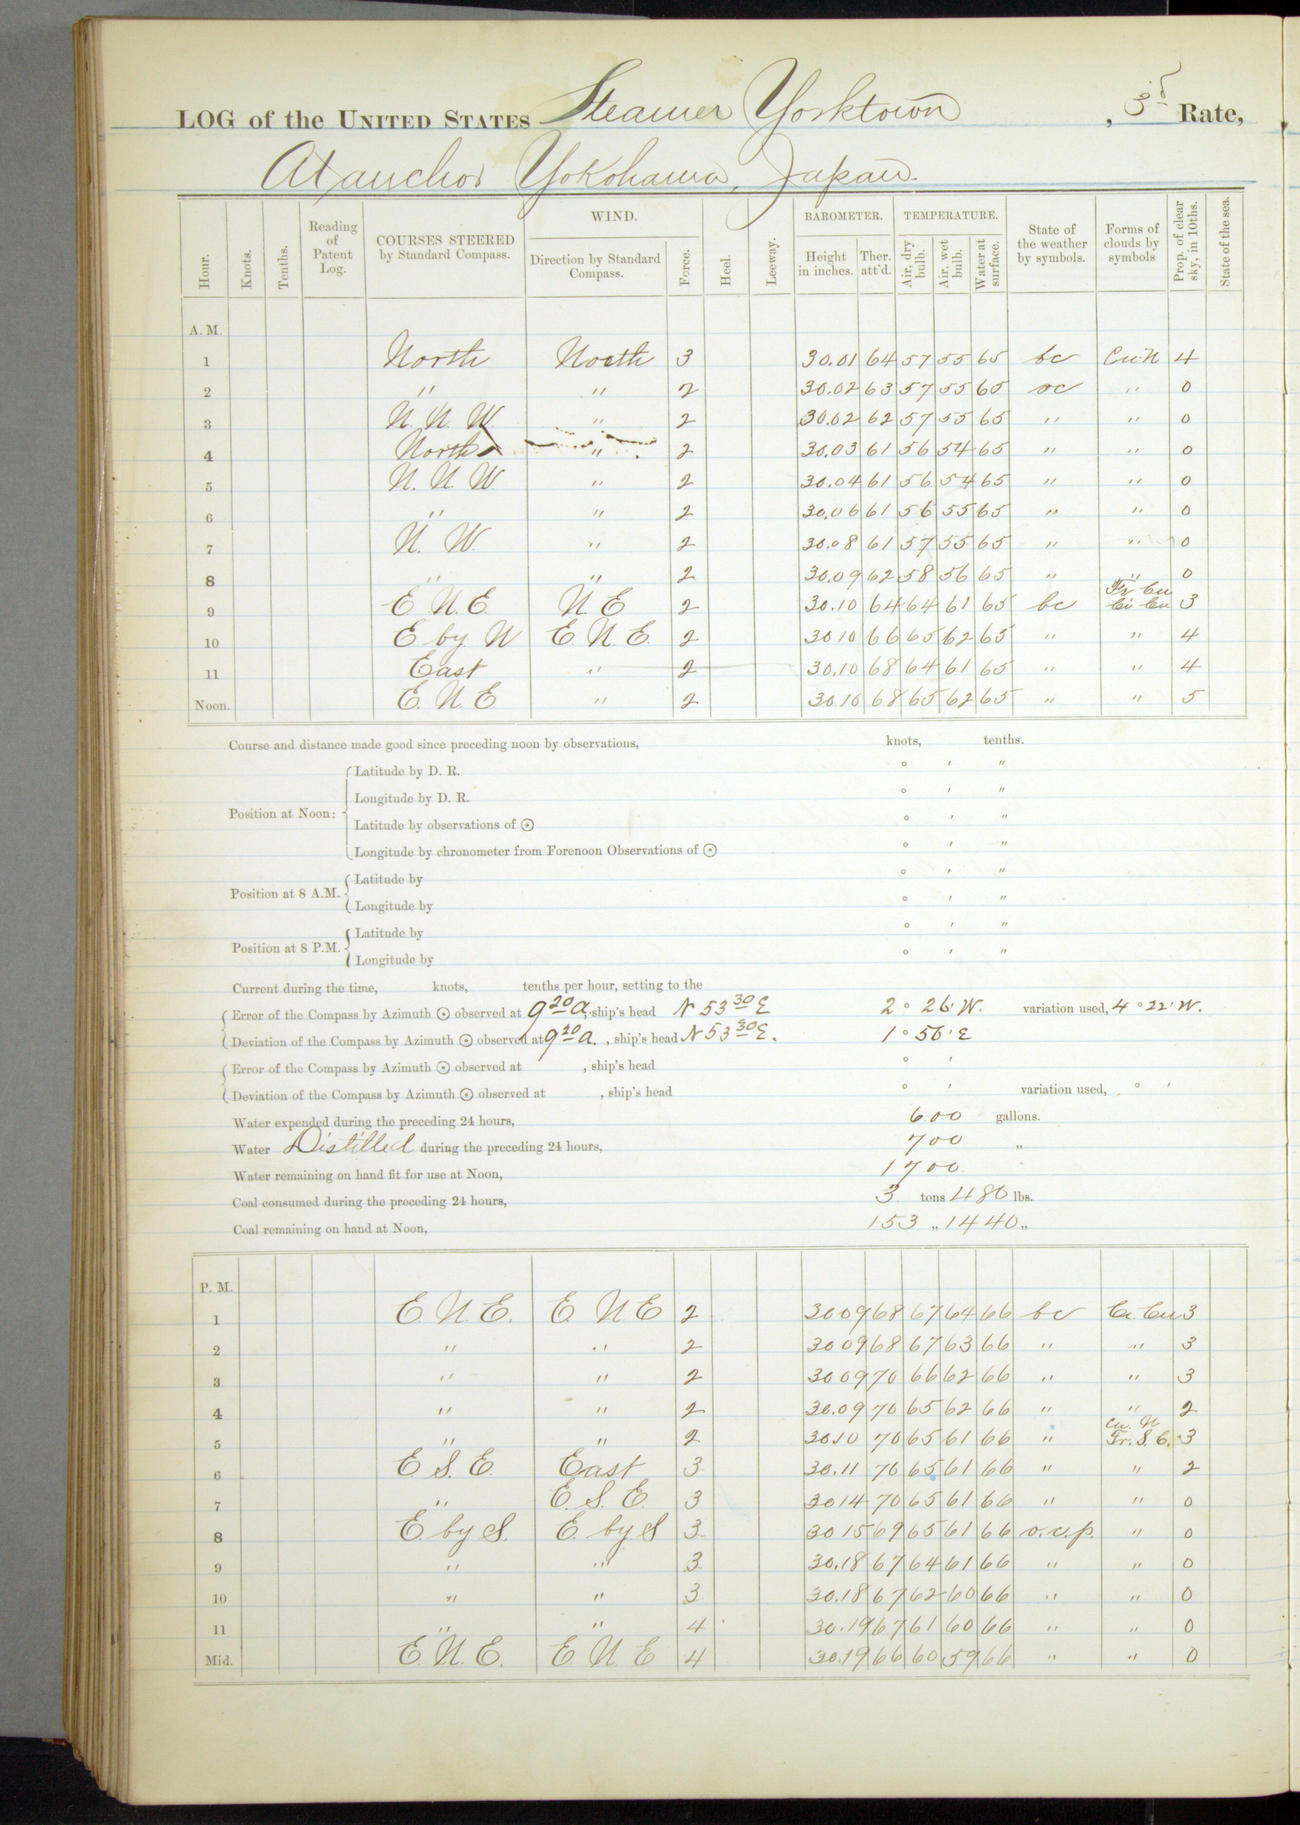 LOG of the UNITED STATES Steamer Yorktown, 3d Rate,
At anchor Yokohama, Japan.
Hour. Knots. Tenths. Reading of Patent Log. COURSES STEERED by Standard Compass. WIND. Direction by Standard Compass. Force. Heel. Leeway. BAROMETER. Height in inches. Ther. att'd. TEMPERATURE. Air, dry bulb. Air, wet bulb. Water at surface. State of the weather by symbols. Forms of clouds by symbols Prop. of clear sky, in 10ths. State of the sea.
A. M.
1 North North 3 30.01 64 57 55 65 bc Cu.N 4
2 " " 2 30.02 63 57 55 65 oc " 0
3 N. N. W. " 2 30.02 62 57 55 65 " " 0
4 North " 2 30.03 61 56 54 65 " " 0
5 N. N. W " 2 30.04 61 56 54 65 " " 0
6 " " 2 30.06 61 56 55 65 " " 0
7 N. W. " 2 30.08 61 57 55 65 " " 0
8 " " 2 30.09 62 58 56 65 " " 0
9 E N.E. N. E 2 30.10 64 64 61 65 bc Fr Cu Ci Cu 3
10 E by N E. N. E. 2 30 10 66 65 62 65 " " 4
11 East " 2 30.10 68 64 61 65 " " 4
Noon. E. N. E " 2 30.10 68 65 62 65 " " 5
Course and distance made good since preceding noon by observations, knots, tenths.
Position at Noon: Latitude by D. R. ° ' "
Longitude by D. R. ° ' "
Latitude by observations of ☉ ° ' "
Longitude by chronometer from Forenoon Observations of ☉ ° ' "
Position at 8 A.M. Latitude by ° ' "
Longitude by ° ' "
Position at 8 P.M. Latitude by ° ' "
Longitude by ° ' "
Current during the time, knots, tenths per hour, setting to the
Error of the Compass by Azimuth ☉ observed at 9 20 a, ship's head N 53 30 E 2 ° 26' W. variation used, 4 ° 22' W.
Deviation of the Compass by Azimuth ☉ observed at 9 20 a. , ship's head N 53 30 E. 1 ° 56' E
Error of the Compass by Azimuth ☉ observed at , ship's head ° '
Deviation of the Compass by Azimuth ☉ observed at , ship's head ° ' variation used, ° '
Water expended during the preceding 24 hours, 600 gallons.
Water Distilled during the preceding 24 hours, 700 "
Water remaining on hand fit for use at Noon, 1700
Coal consumed during the preceding 24 hours, 3 tons 480 lbs.
Coal remaining on hand at Noon, 153 " 1440 "
P. M.
1 E N. E. E N E 2 30 09 68 67 64 66 bc Ci Cu 3
2 " " 2 30 09 68 67 63 66 " " 3
3 " " 2 30 09 70 66 62 66 " " 3
4 " " 2 30.09 70 65 62 66 " " 2
5 " " 2 30.10 70 65 61 66 " Cu. N Fr. S. C. 3
6 E S. E. East 3 30.11 70 65 61 66 " " 2
7 " E. S. E. 3 30 14 70 65 61 66 " " 0
8 E by S. E. by S 3 30 15 69 65 61 66 o.c.p. " 0
9 " " 3 30.18 67 64 61 66 " " 0
10 " " 3 30.18 67 62 60 66 " " 0
11 " " 4 30.19 67 61 60 66 " " 0
Mid. E N. E. E. N. E 4 30.19 66 60 59 66 " " 0